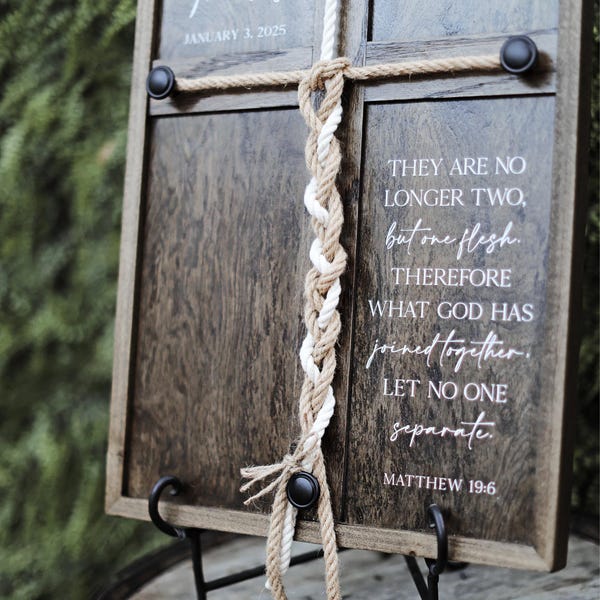 JANUARY 3, 2025
THEY ARE NO
LONGER TWO,
but one flesh.
THEREFORE
WHAT GOD HAS
joined together,
LET NO ONE
separate.
MATTHEW 19:6